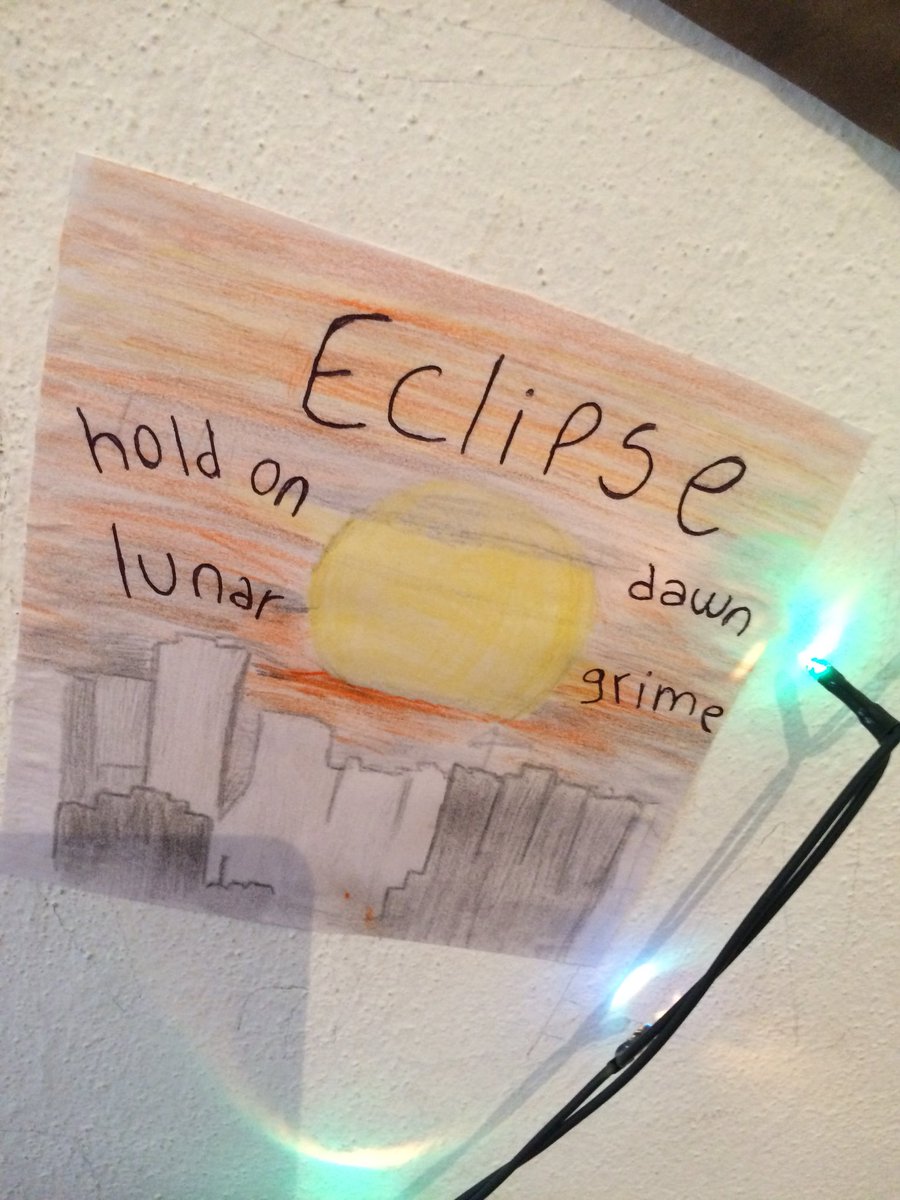 Eclipse
hold on
lunar
dawn
grime